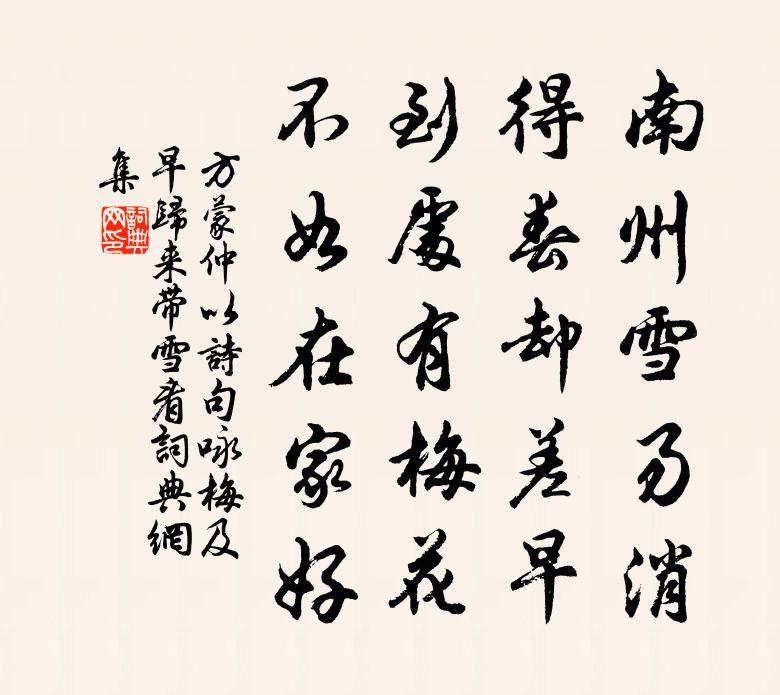 南州雪易消
得春却差早
到處有梅花
不如在家好
方蒙仲以詩句咏梅及
早歸来带雪看詞典網
集
詞典
网印